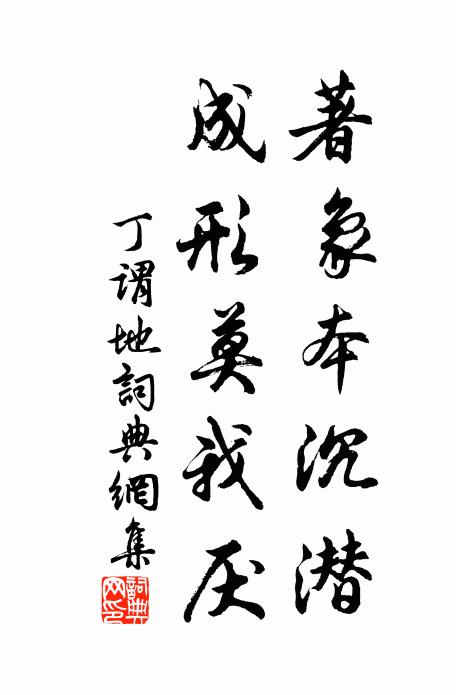 著象本沉潜
成形莫我厌
丁謂地詞典網集
詞典
网印